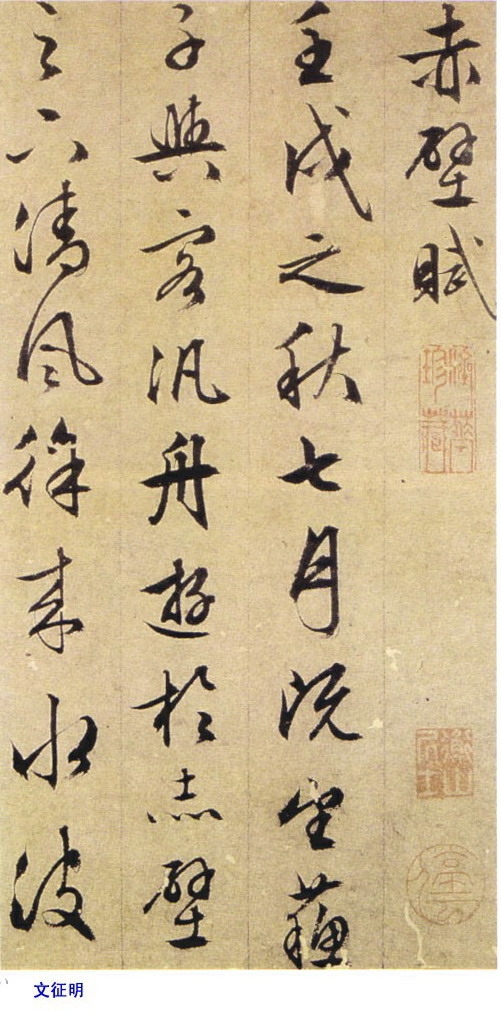 赤壁賦
壬戌之秋七月既望蘇
子與客汎舟遊於赤壁
之下清風徐來水波
文征明